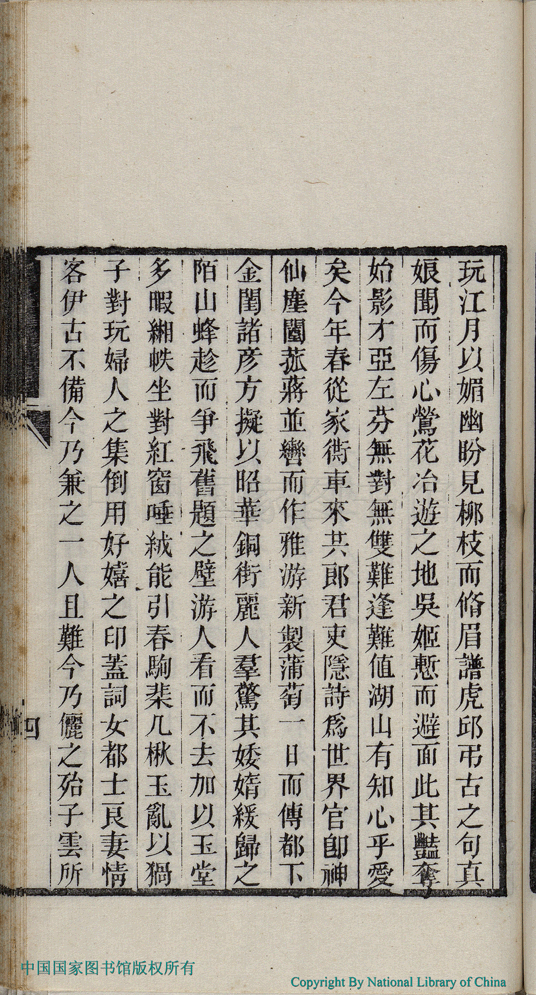 玩江月以媚幽盼見柳枝而脩眉譜虎邱弔古之句真
娘聞而傷心鶯花冶遊之地吳姬慙而避面此其豔奪
始影才亞左芬無對無雙難逢難值湖山有知心乎愛
矣今年春從家衖車來共郎君吏隱詩爲世界官卽神
仙塵闔菰蔣並轡而作雅游新製蒲萄一日而傳都下
金閨諸彥方擬以昭華銅街麗人羣驚其婑媠緩歸之
陌山蜂趁而爭飛舊題之壁游人看而不去加以玉堂
多暇緗帙坐對紅窗唾絨能引春駒棐几楸玉亂以猧
子對玩婦人之集倒用好嬉之印蓋詞女都士良妻情
客伊古不備今乃兼之一人且難今乃儷之殆子雲所
四
中国国家图书馆版权所有
Copyright By National Library of China